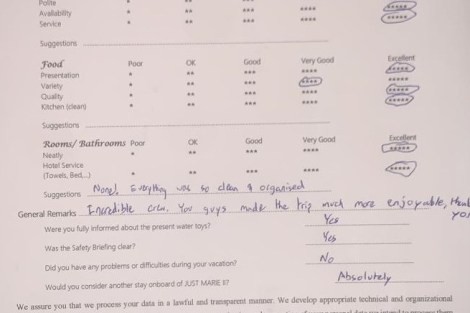 Polite
Availability * ** *** **** *****
Service * ** *** **** *****
Suggestions
Food Poor OK Good Very Good Excellent
Presentation * ** *** **** *****
Variety * ** *** **** *****
Quality * ** *** **** *****
Kitchen (clean) * ** *** **** *****
Suggestions
Rooms/ Bathrooms Poor OK Good Very Good Excellent
Neatly * ** *** **** *****
Hotel Service
(Towels, Bed,...) * ** *** **** *****
Suggestions None! Everything was so clean & organised
General Remarks Incredible crew. You guys made the trip much more enjoyable,
Were you fully informed about the present water toys? Yes
Was the Safety Briefing clear? Yes
Did you have any problems or difficulties during your vacation? No
Would you consider another stay onboard of JUST MARIE II? Absolutely
We assure you that we process your data in a lawful and transparent manner. We develop appropriate technical and organizational